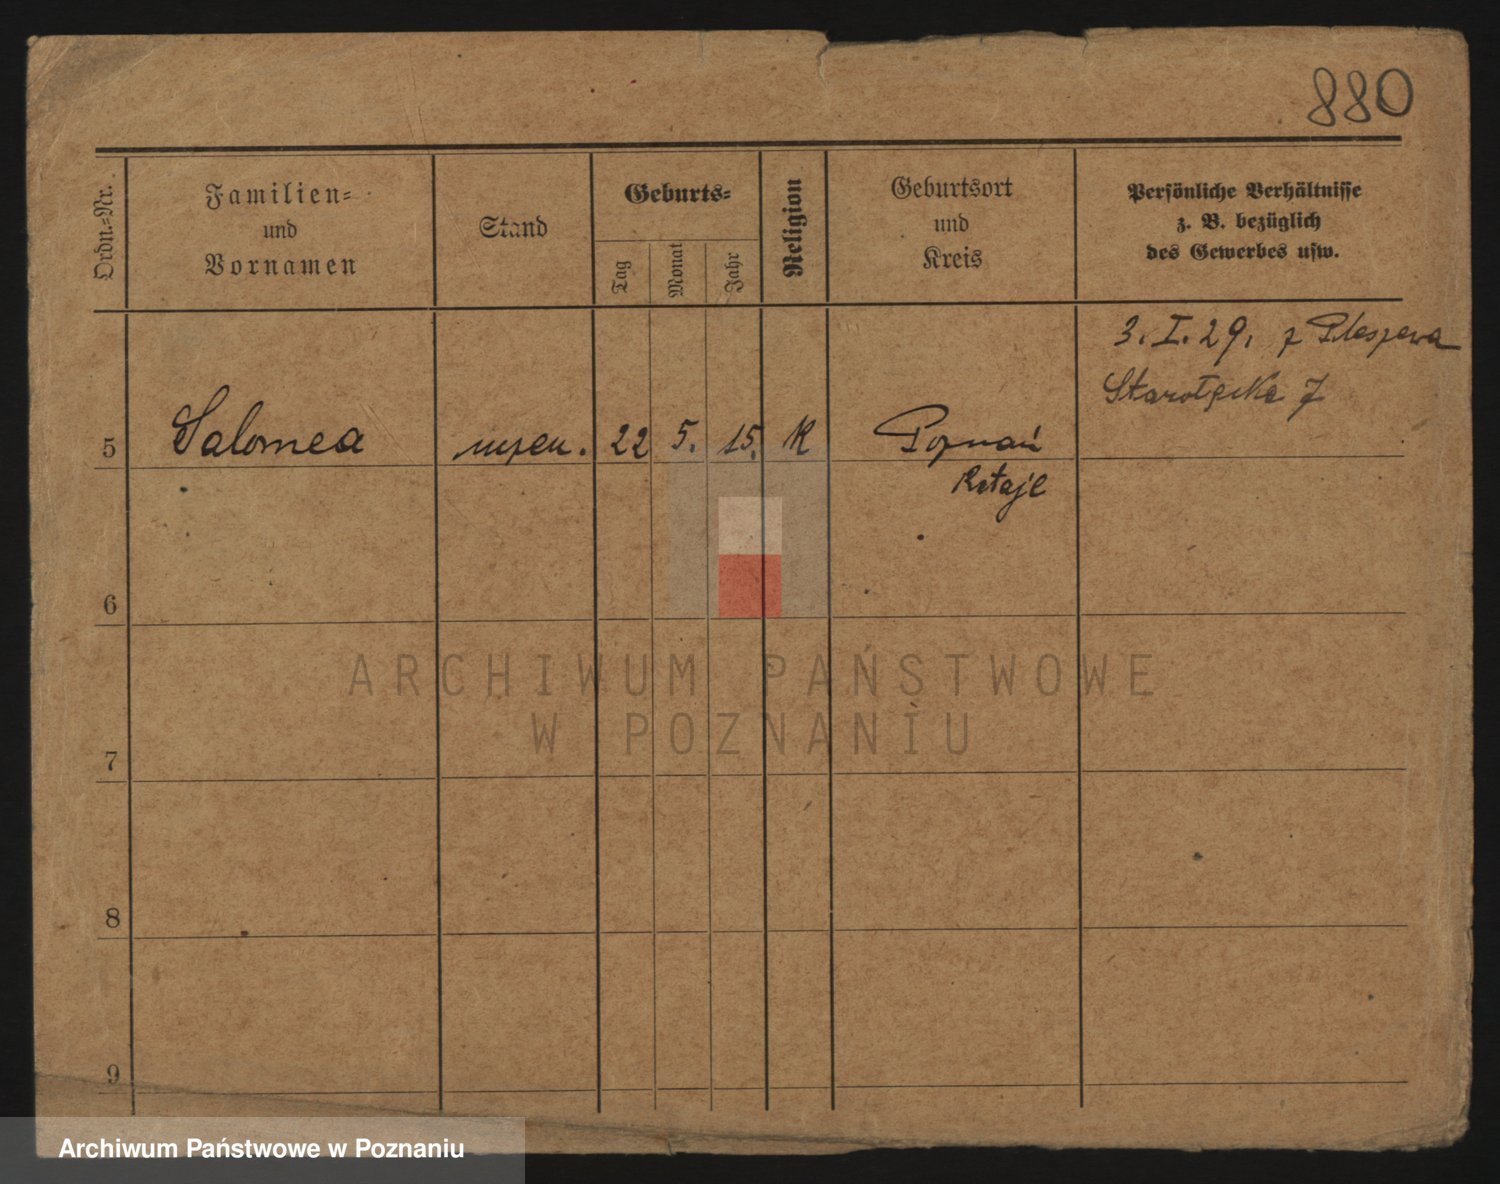 880
Ordn.-Nr.
Familien-
und
Vornamen
Stand
Geburts-
Tag
Monat
Jahr
Religion
Geburtsort
und
Kreis
Persönliche Verhältnisse
z. B. bezüglich
des Gewerbes usw.
3. I. 29. z Pleszewa
Starołęcka 7
5 Salomea 22 5. 15. K Poznań
Rataje
6
ARCHIWUM PAŃSTWOWE
W POZNANIU
7
8
9
Archiwum Państwowe w Poznaniu